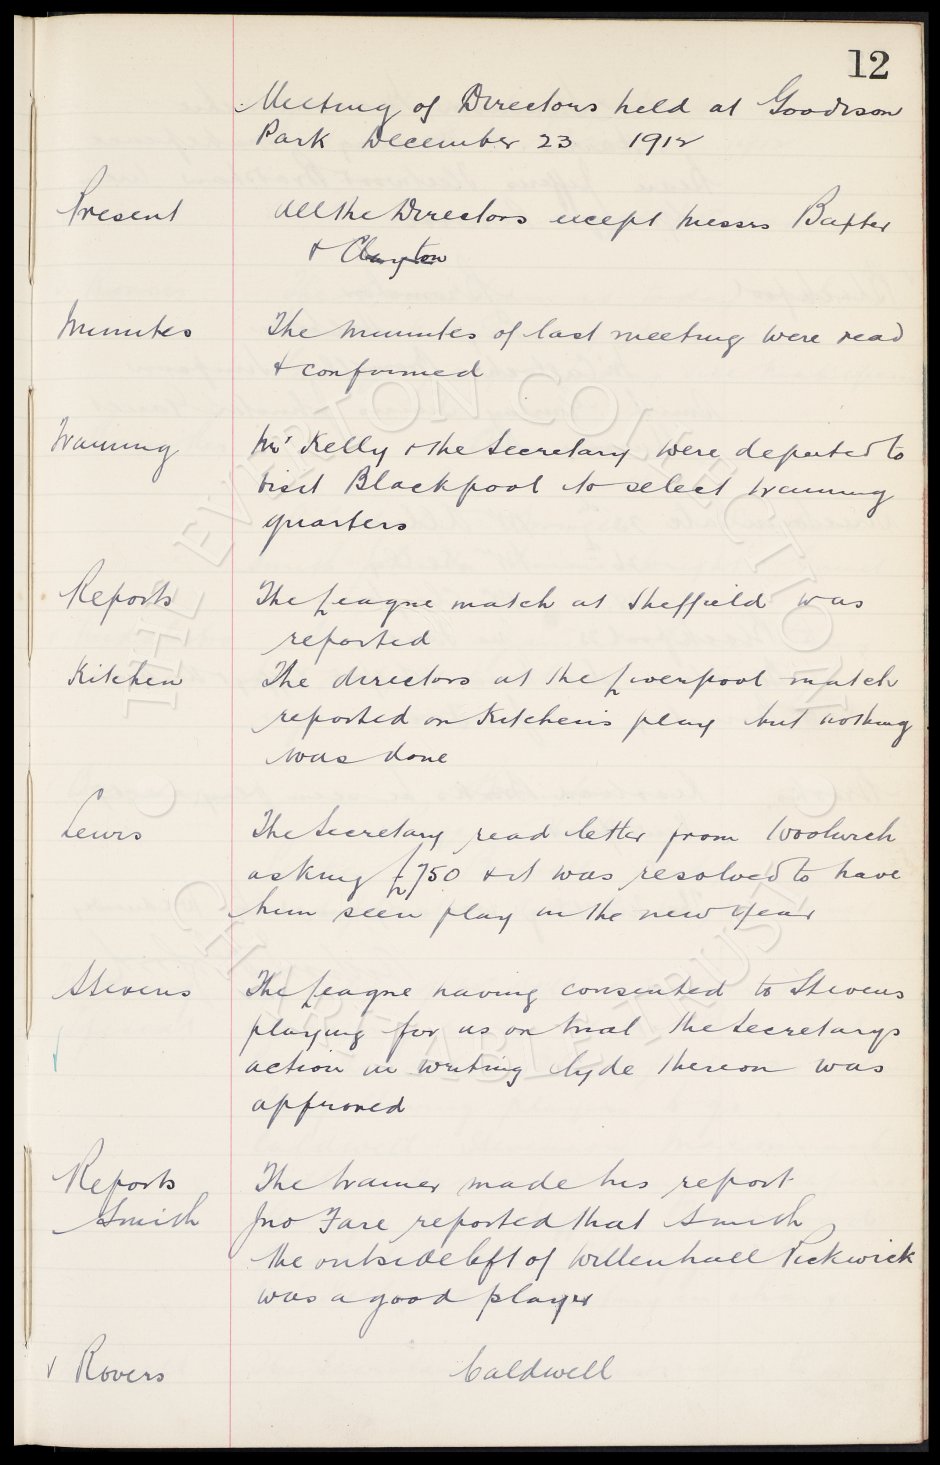 12
Meeting of Directors held at Goodison
Park December 23 1912
Present All the Directors except Messrs Baxter
& Clayton
Minutes The Minutes of last meeting were read
& confirmed
Training Mr Kelly & the Secretary were deputed to
visit Blackpool to select training
quarters
Reports The League match at Sheffield was
reported
Kitchen The directors at the Liverpool match
reported on Kitchen's play but nothing
was done
Lewis The Secretary read letter from Woolwich
asking £750 & it was resolved to have
him seen play in the new year
Stevens The League having consented to Stevens
playing for us on trial the Secretarys
action in writing Clyde thereon was
approved
Reports The trainer made his report
Smith Jno Fare reported that Smith
the outside left of Willenhall Pickwick
was a good player
Rovers Caldwell
THE EVERTON COLLECTION
CHARITABLE TRUST